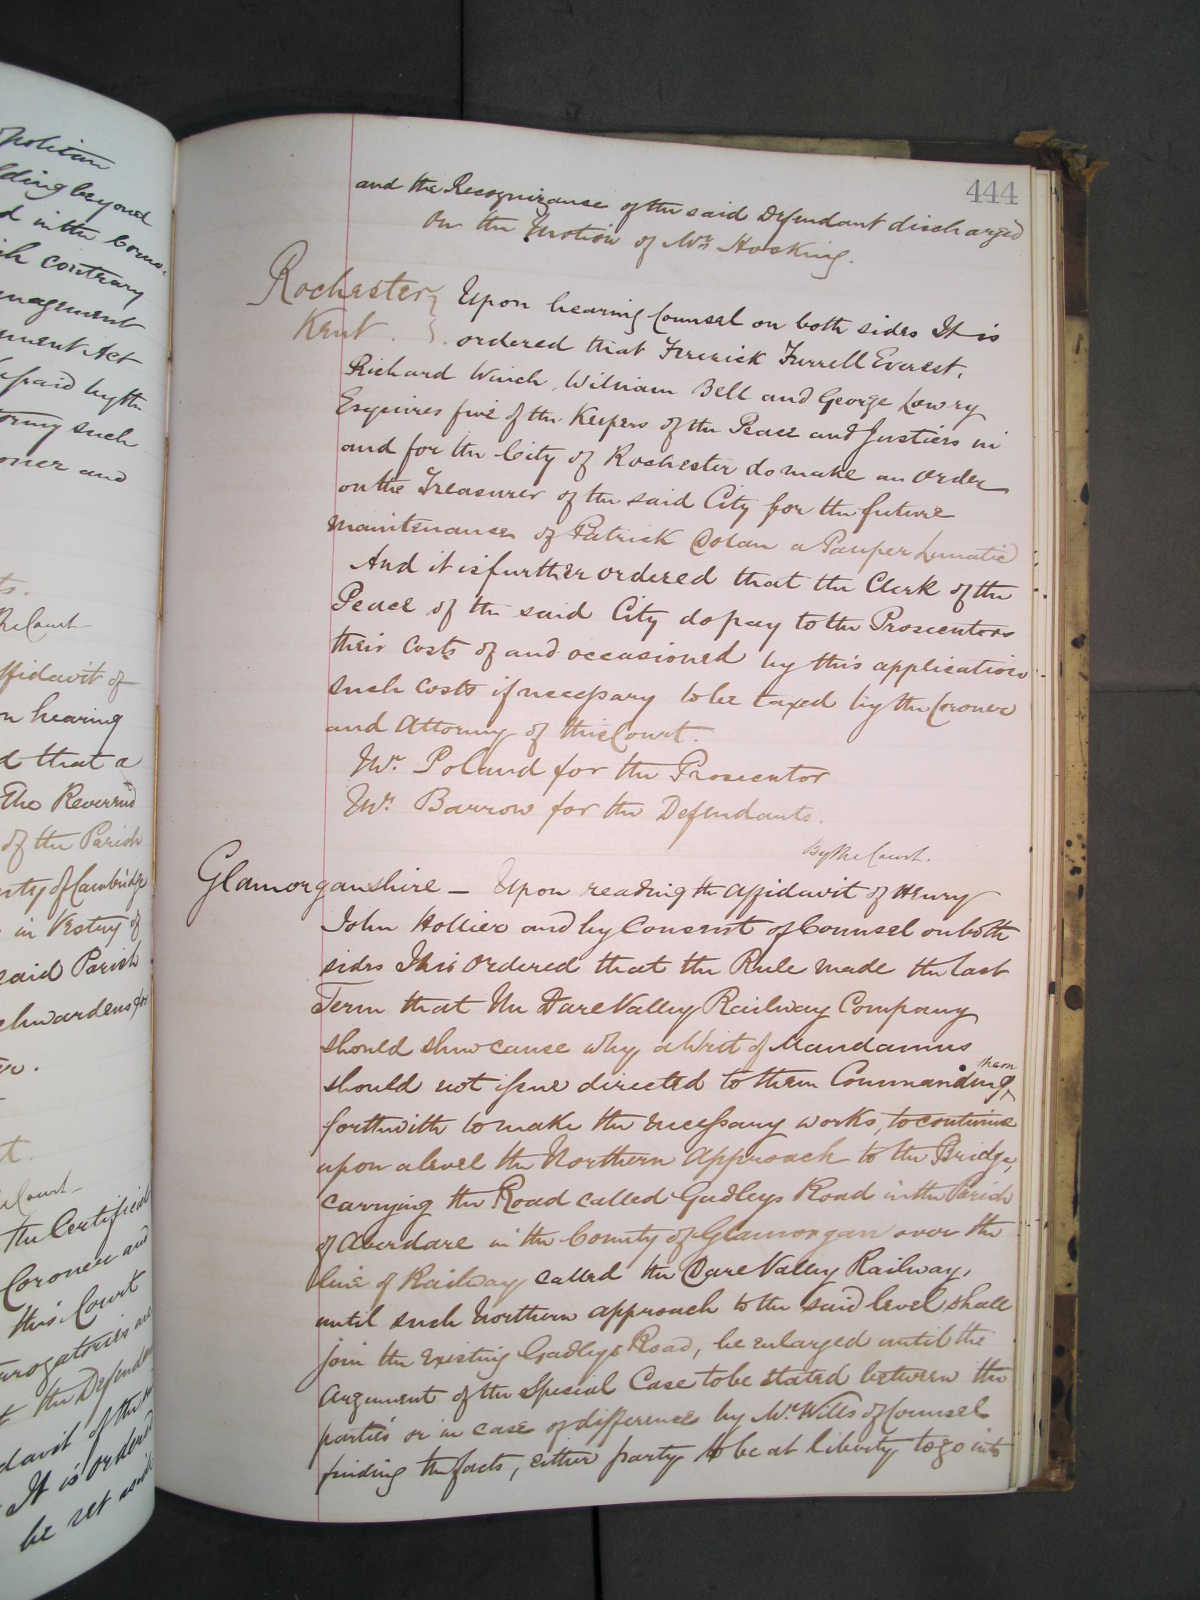 politan
lding beyond
d in the Commo-
ch contrary
nagement
nment Act
paid by the
orny such
oner and
ts.
The Court
ffidavit of
n hearing
d that a
The Reverend
of the Parish
nty of Cambridge
in Vestry of
said Parish
chwardens for
t.
Court
the Certificate
Coroner and
this Court
rrogatories are
the Defendant
davit of the
It is Ordered
be set aside
444
and the Recognizance of the said Defendant discharged
On the Motion of Mr. Hosking.
Rochester } Upon hearing Counsel on both sides It is
Kent . } ordered that Frerick Furrell Everest,
Richard Winch, William Bell and George Lowry
Esquires five of the Keepers of the Peace and Justices in
and for the City of Rochester do make an order
on the Treasurer of the said City for the future
maintenance of Patrick Dolan a Pauper Lunatic
And it is further ordered that the Clerk of the
Peace of the said City do pay to the Prosecutors
their Costs of and occasioned by this application
such costs if necessary to be taxed by the Coroner
and Attorney of this Court.
Mr. Poland for the Prosecutor
Mr. Barrow for the Defendants.
By the Court.
Glamorganshire — Upon reading the affidavit of Henry
John Hollier and by Consent of Counsel on both
sides It is Ordered that the Rule made the last
Term that The Dare Valley Railway Company
should show cause why a Writ of Mandamus
should not issue directed to them Commanding them
forthwith to make the necessary works, to continue
upon a level the Northern Approach to the Bridge,
carrying the Road called Gadleys Road in the Parish
of Aberdare in the County of Glamorgan over the
line of Railway called the Dare Valley Railway,
until such Northern approach to the said level shall
join the existing Gadleys Road, be enlarged until the
Argument of the Special Case to be stated between the
parties or in case of differences by Mr. Wills of Counsel
finding the facts, either party to be at liberty to go into